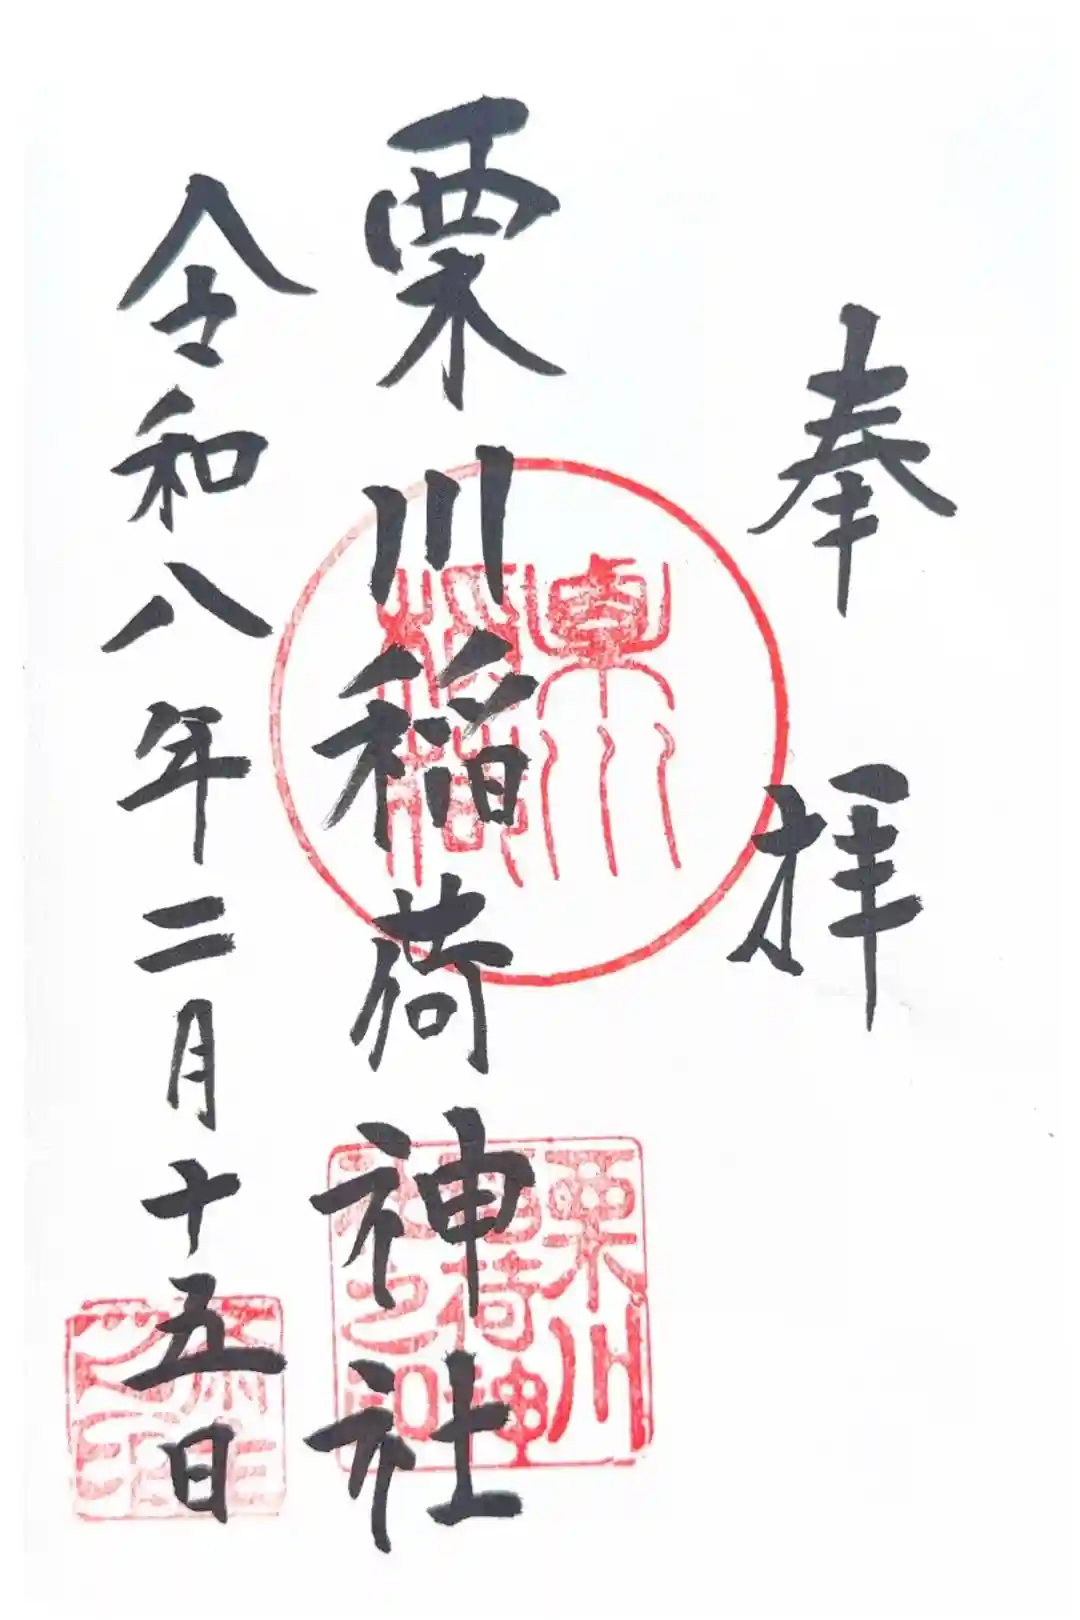 奉拝
栗川稲荷神社
令和八年二月十五日
栗川
稲荷神
社之印